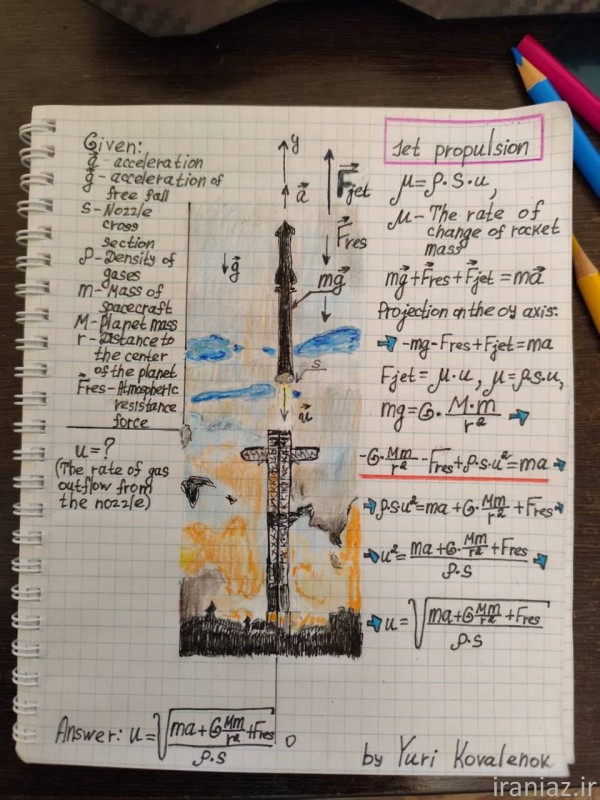 Given:
a⃗ - acceleration
g⃗ - acceleration of
free fall
S - Nozzle
cross
section
ρ - Density of
gases
m - Mass of
spacecraft
M - Planet mass
r - Distance to
the center
of the planet
F⃗res - Atmospheric
resistance
force
u = ?
(The rate of gas
outflow from
the nozzle)
y
a⃗
F⃗jet
F⃗res
g⃗
mg⃗
S
u⃗
Jet propulsion
μ = ρ·S·u,
μ - The rate of
change of rocket
mass
mg⃗ + F⃗res + F⃗jet = ma⃗
Projection on the oy axis:
→ -mg - Fres + Fjet = ma
Fjet = μ·u, μ = ρ·S·u,
mg = G·M·m/r² →
-G·Mm/r² - Fres + ρ·S·u² = ma →
→ ρSu² = ma + G·Mm/r² + Fres →
→ u² = (ma + G·Mm/r² + Fres)/(ρ·S) →
→ u = √((ma + G Mm/r² + Fres)/(ρ·S))
Answer: u = √((ma + G Mm/r² + Fres)/(ρ·S))
0
by Yuri Kovalenok
iraniaz.ir